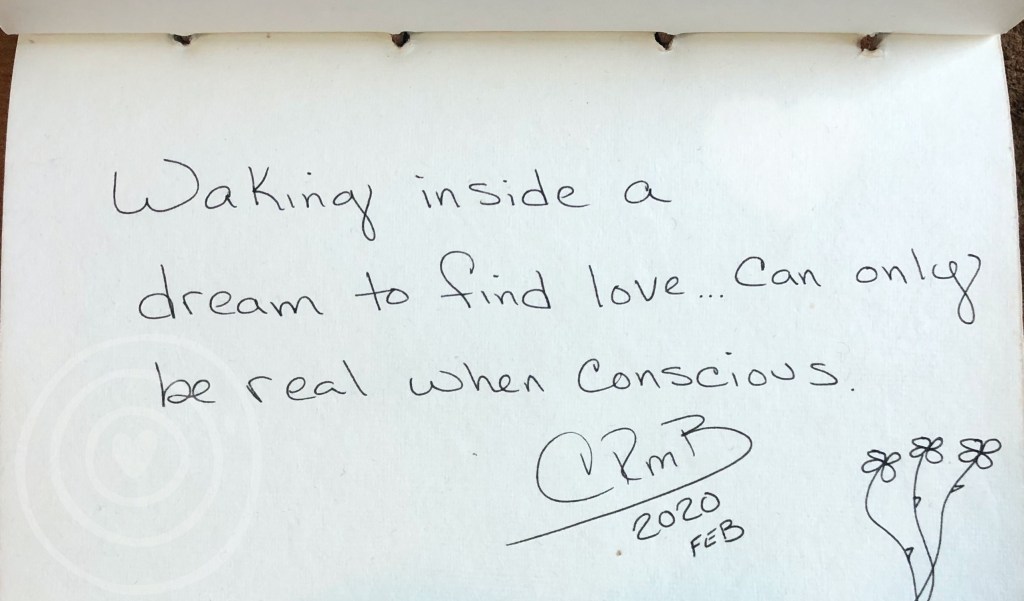 Waking inside a
dream to find love... Can only
be real when Conscious.
CRMB
2020
FEB